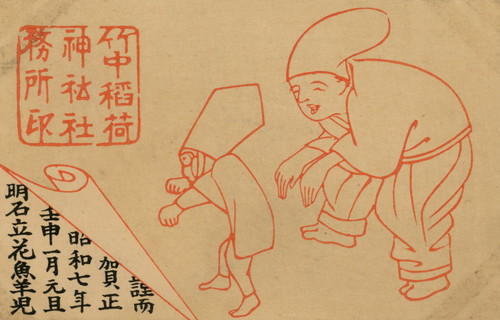 竹中稲荷
神社社
務所印
謹而
賀正
昭和七年
壬申一月元旦
明石立花魚羊児